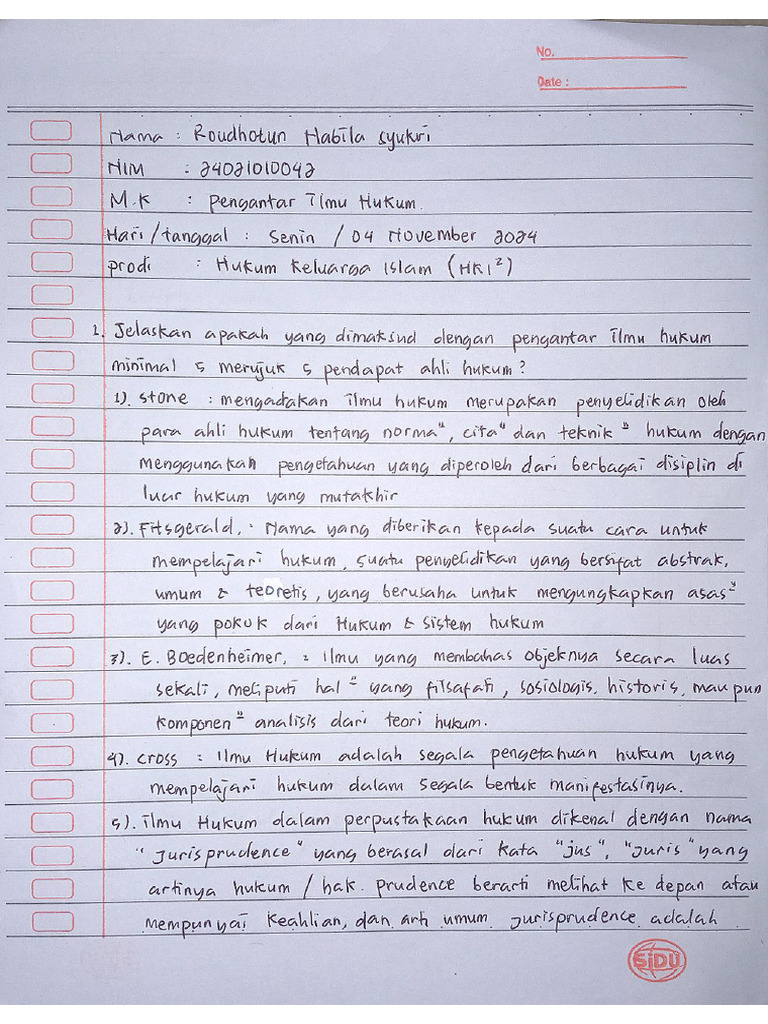 No.
Date :
Nama : Roudhotun Habila Syukri
NIM : 24021010042
M.K : Pengantar Ilmu Hukum.
Hari/tanggal : Senin / 04 November 2024
prodi : Hukum Keluarga Islam (HKI²)
1. Jelaskan apakah yang dimaksud dengan pengantar ilmu hukum
minimal 5 merujuk 5 pendapat ahli hukum?
1). Stone : mengadakan ilmu hukum merupakan penyelidikan oleh
para ahli hukum tentang norma", cita" dan teknik" hukum dengan
menggunakan pengetahuan yang diperoleh dari berbagai disiplin di
luar hukum yang mutakhir
2). Fitsgerald, : Nama yang diberikan kepada suatu cara untuk
mempelajari hukum, suatu penyelidikan yang bersifat abstrak,
umum & teoretis, yang berusaha untuk mengungkapkan asas"
yang pokok dari Hukum & sistem hukum
3). E. Boedenheimer, : Ilmu yang membahas objeknya secara luas
sekali, meliputi hal" yang filsafati, sosiologis, historis, maupun
komponen" analisis dari teori hukum.
4). Cross : Ilmu Hukum adalah segala pengetahuan hukum yang
mempelajari hukum dalam segala bentuk manifestasinya.
5). ilmu Hukum dalam perpustakaan hukum dikenal dengan nama
"Jurisprudence" yang berasal dari kata "jus", "juris" yang
artinya hukum / hak. prudence berarti melihat ke depan atau
mempunyai keahlian, dan arti umum jurisprudence adalah
SiDU